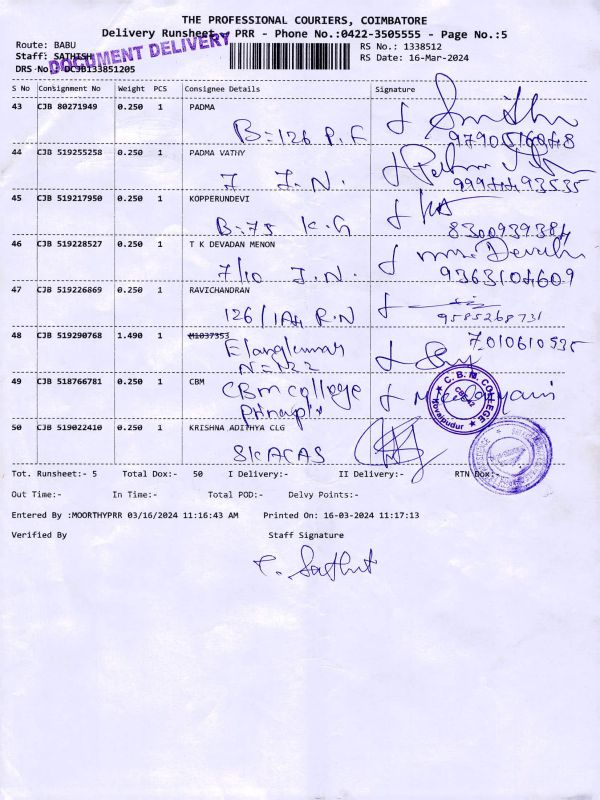 THE PROFESSIONAL COURIERS, COIMBATORE
Delivery Runsheet - PRR - Phone No.:0422-3505555 - Page No.:5
Route: BABU RS No.: 1338512
Staff: SATHISH RS Date: 16-Mar-2024
DOCUMENT DELIVERY
DRS No.: DCJB133851205
S No Consignment No Weight PCS Consignee Details Signature
43 CJB 80271949 0.250 1 PADMA
B=126 P.F
44 CJB 519255258 0.250 1 PADMA VATHY
7 J.N. 9994493535
45 CJB 519217950 0.250 1 KOPPERUNDEVI
B=75 K.G 8300939384
46 CJB 519228527 0.250 1 T K DEVADAN MENON
7/10 J.N. 9363104609
47 CJB 519226869 0.250 1 RAVICHANDRAN
126/1A4 R.N 9585268731
48 CJB 519290768 1.490 1 M1037353 7010610535
Elangkumar
49 CJB 518766781 0.250 1 CBM
CBM College
C.B.M. COLLEGE
Kovaipudur
50 CJB 519022410 0.250 1 KRISHNA ADITHYA CLG
SKACAS
Tot. Runsheet:- 5 Total Dox:- 50 I Delivery:- II Delivery:- RTN Dox:-
Out Time:- In Time:- Total POD:- Delvy Points:-
Entered By :MOORTHYPRR 03/16/2024 11:16:43 AM Printed On: 16-03-2024 11:17:13
Verified By Staff Signature